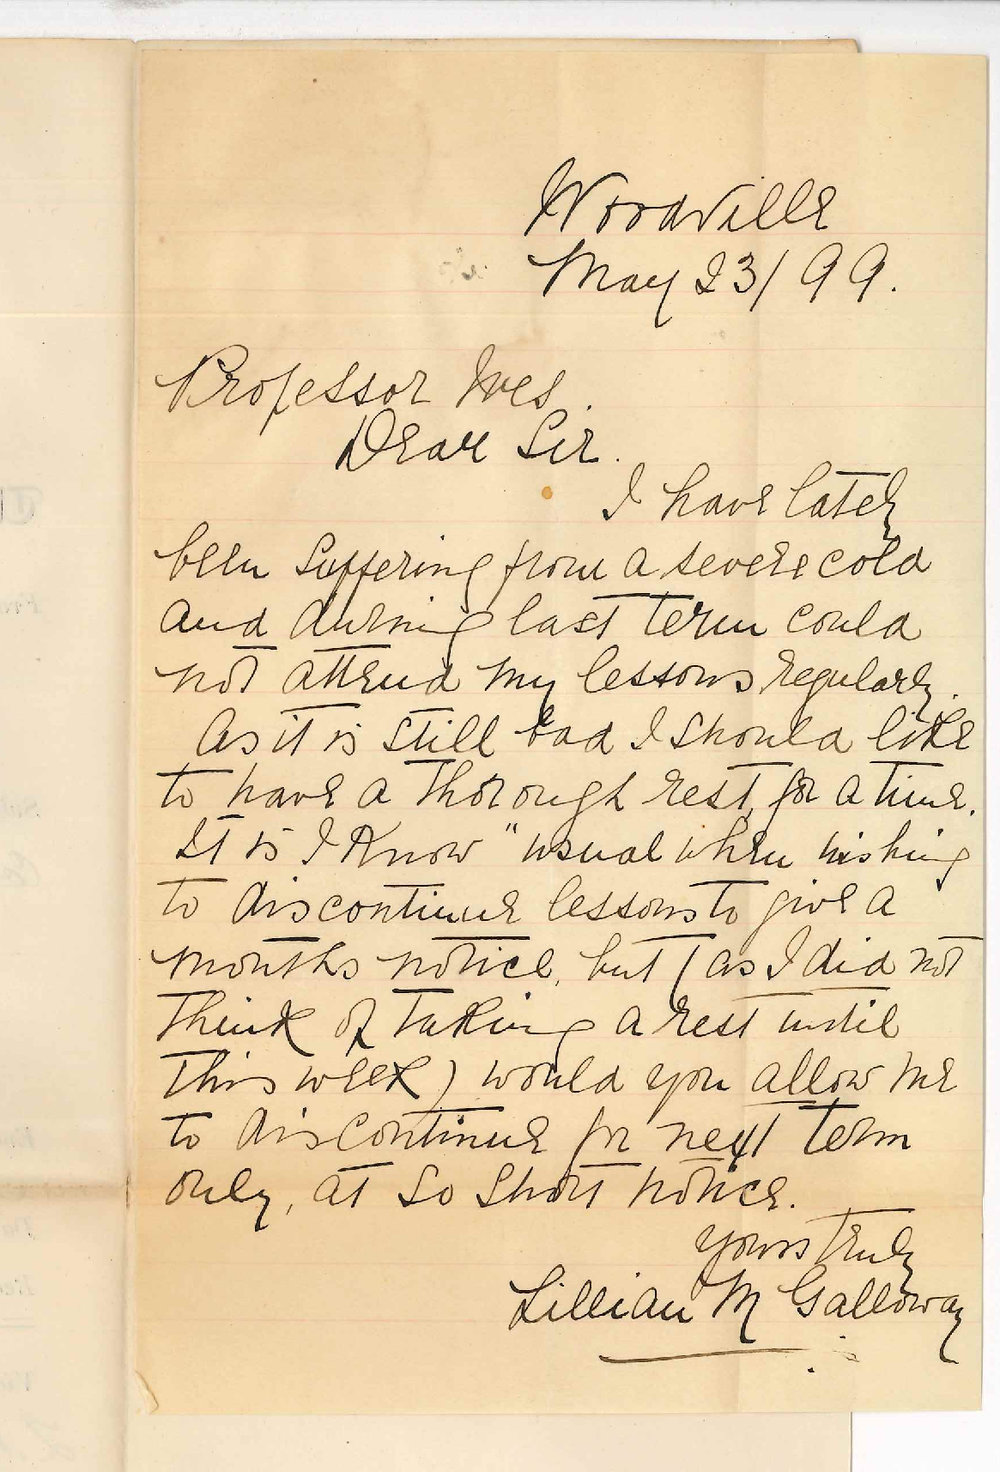 Woodville
May 23/99.
Professor Ives.
Dear Sir.
I have lately
been suffering from a severe cold
and during last term could
not attend my lessons regularly.
As it is still bad I should like
to have a thorough rest, for a time.
It is I know "usual when wishing
to discontinue lessons to give a
months notice, but (as I did not
think of taking a rest until
this week) would you allow me
to discontinue for next term
only, at so short notice.
Yours truly
Lillian M Galloway